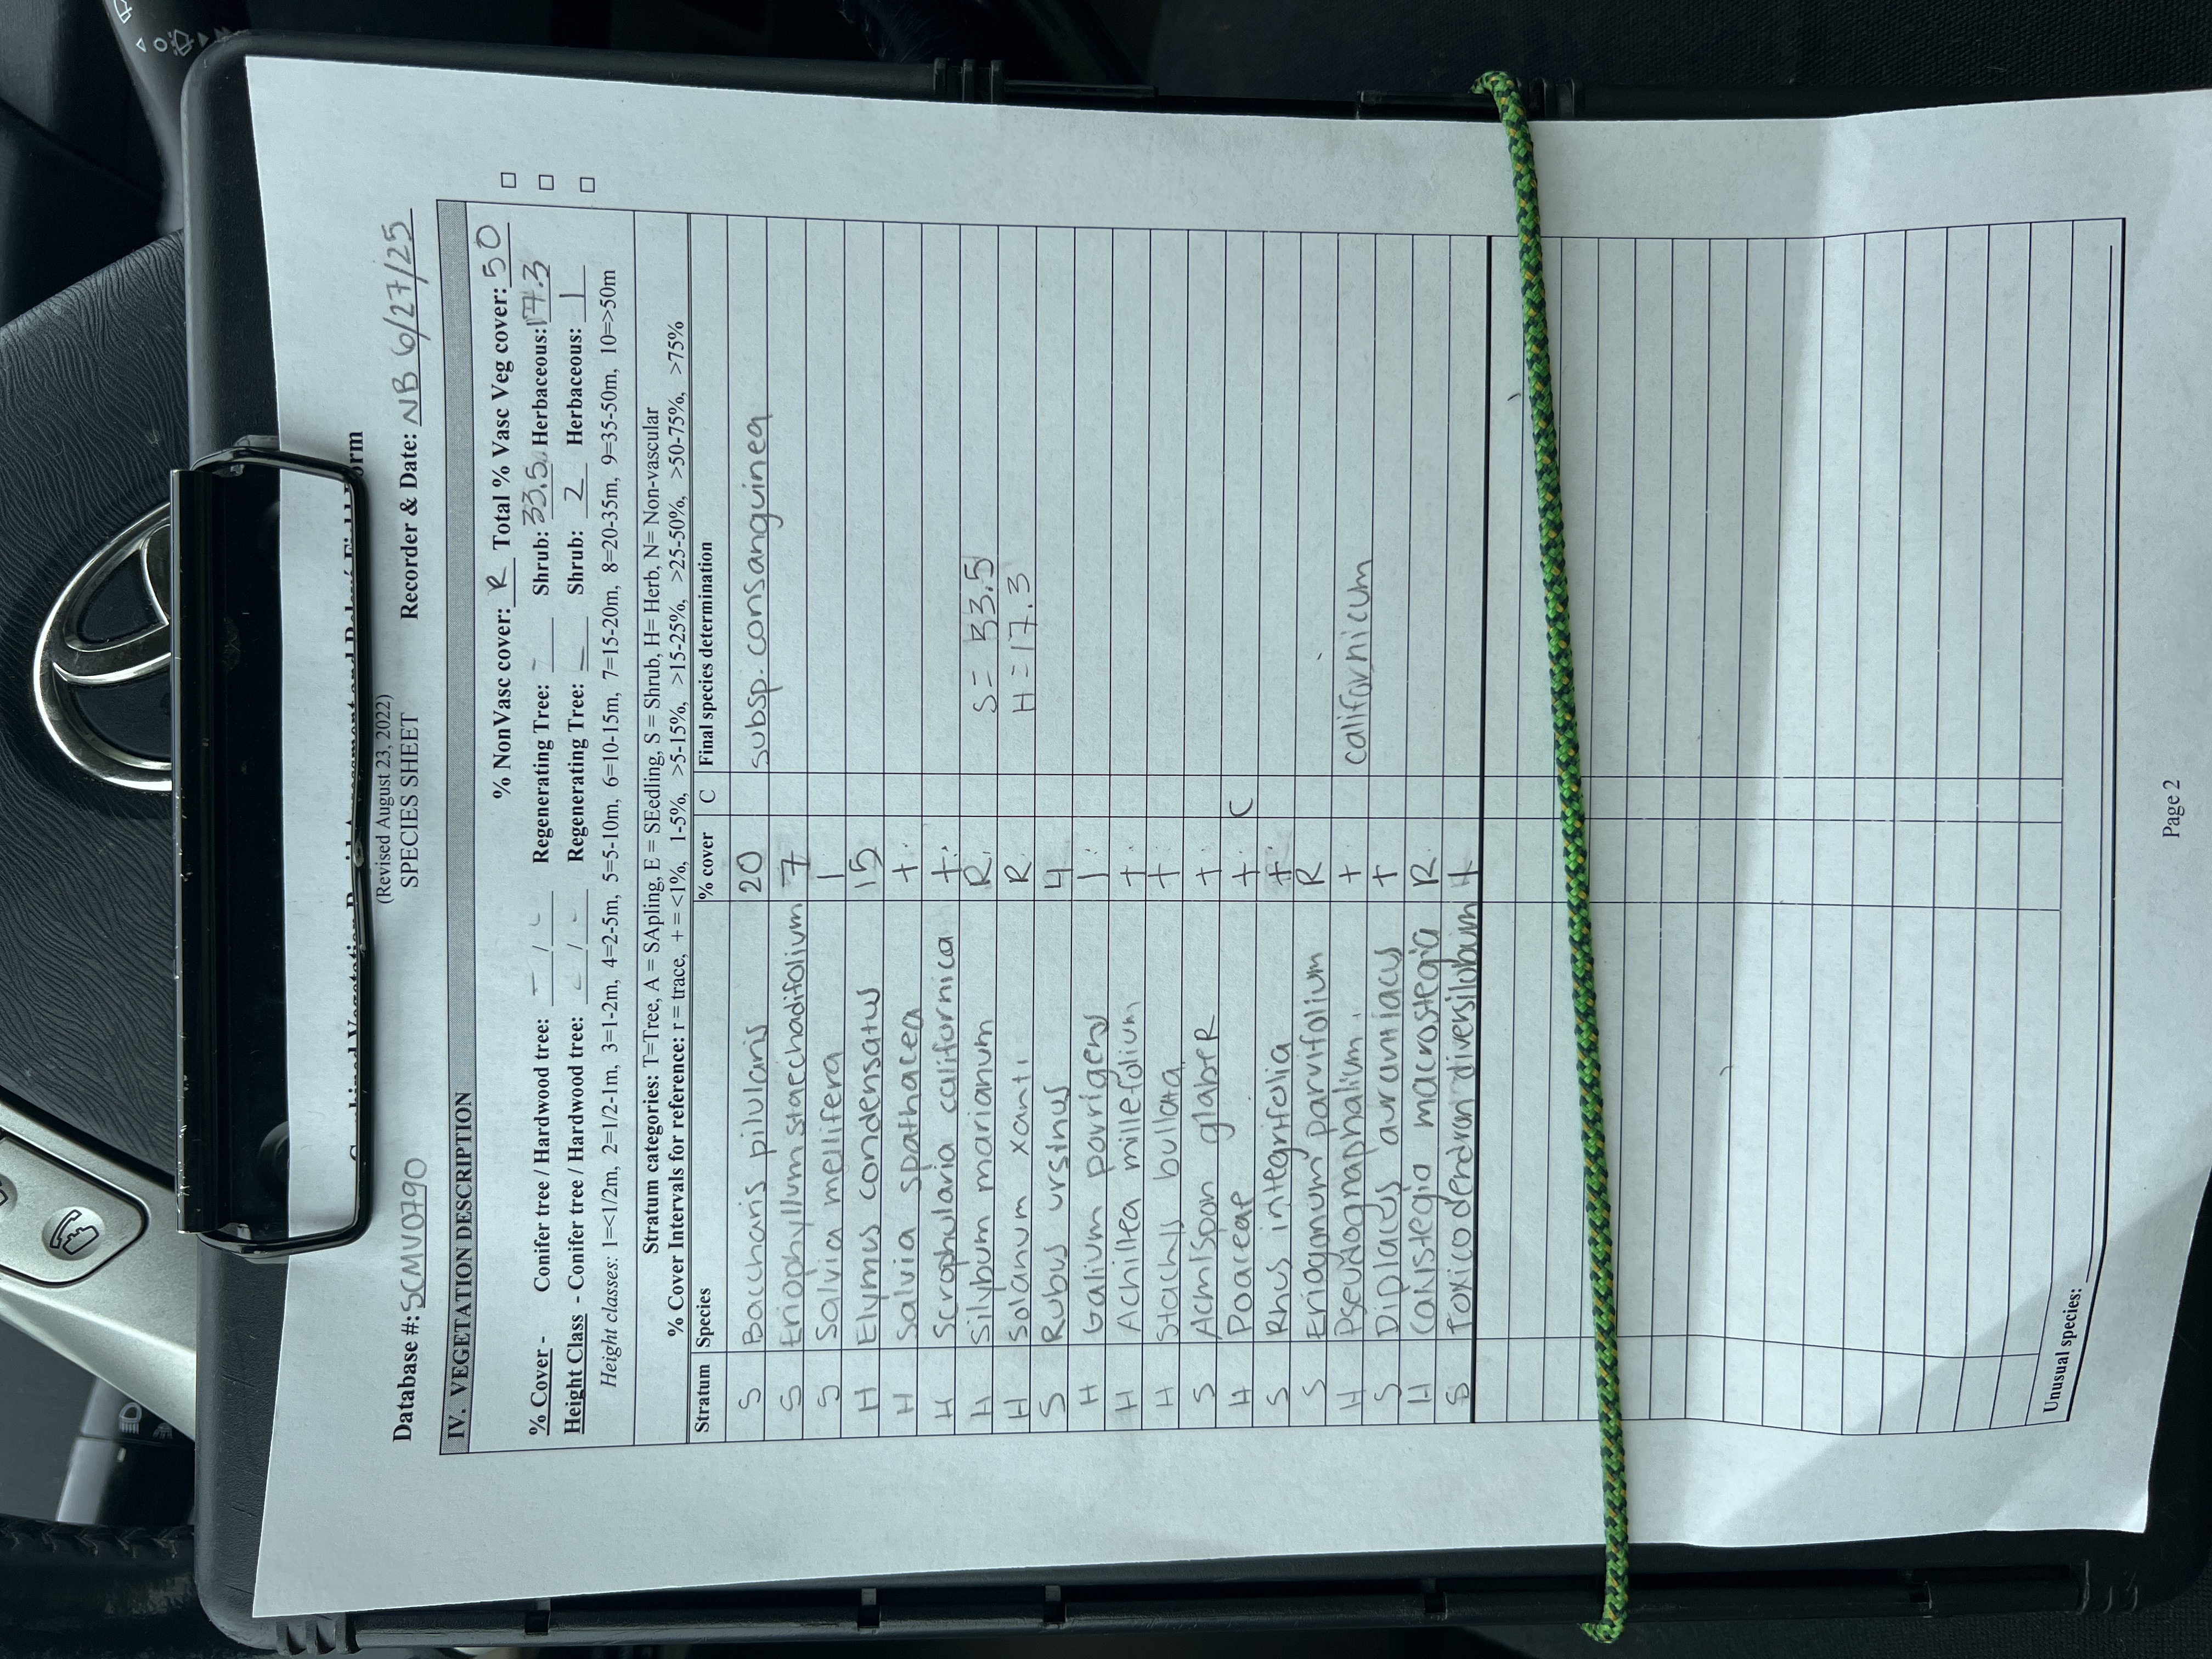 Combined Vegetation Rapid Assessment and Relevé Field Form
(Revised August 23, 2022)
SPECIES SHEET
Database #: SCMV0790 Recorder & Date: NB 6/27/25
IV. VEGETATION DESCRIPTION
% NonVasc cover: R Total % Vasc Veg cover: 50 □
% Cover - Conifer tree / Hardwood tree: - / - Regenerating Tree: - Shrub: 33.5 Herbaceous: 17.3 □
Height Class - Conifer tree / Hardwood tree: - / - Regenerating Tree: - Shrub: 2 Herbaceous: 1 □
Height classes: 1=<1/2m, 2=1/2-1m, 3=1-2m, 4=2-5m, 5=5-10m, 6=10-15m, 7=15-20m, 8=20-35m, 9=35-50m, 10=>50m
Stratum categories: T=Tree, A = SApling, E = SEedling, S = Shrub, H= Herb, N= Non-vascular
% Cover Intervals for reference: r = trace, + = <1%, 1-5%, >5-15%, >15-25%, >25-50%, >50-75%, >75%
Stratum Species % cover C Final species determination
S Baccharis pilularis 20 subsp. consanguinea
S Eriophyllum staechadifolium 7
S Salvia mellifera 1
H Elymus condensatus 15
H Salvia spathacea +
H Scrophularia californica +
H Silybum marianum R S = 33.5
H Solanum xanti R H = 17.3
S Rubus ursinus 4
H Galium porrigens 1
H Achillea millefolium +
H Stachys bullata +
S Acmispon glabeR +
H Poaceae + C
S Rhus integrifolia +
S Eriogonum parvifolium R
H Pseudognaphalium + californicum
S Diplacus aurantiacus +
H Calystegia macrostegia R
S Toxicodendron diversilobum +
Unusual species:
Page 2